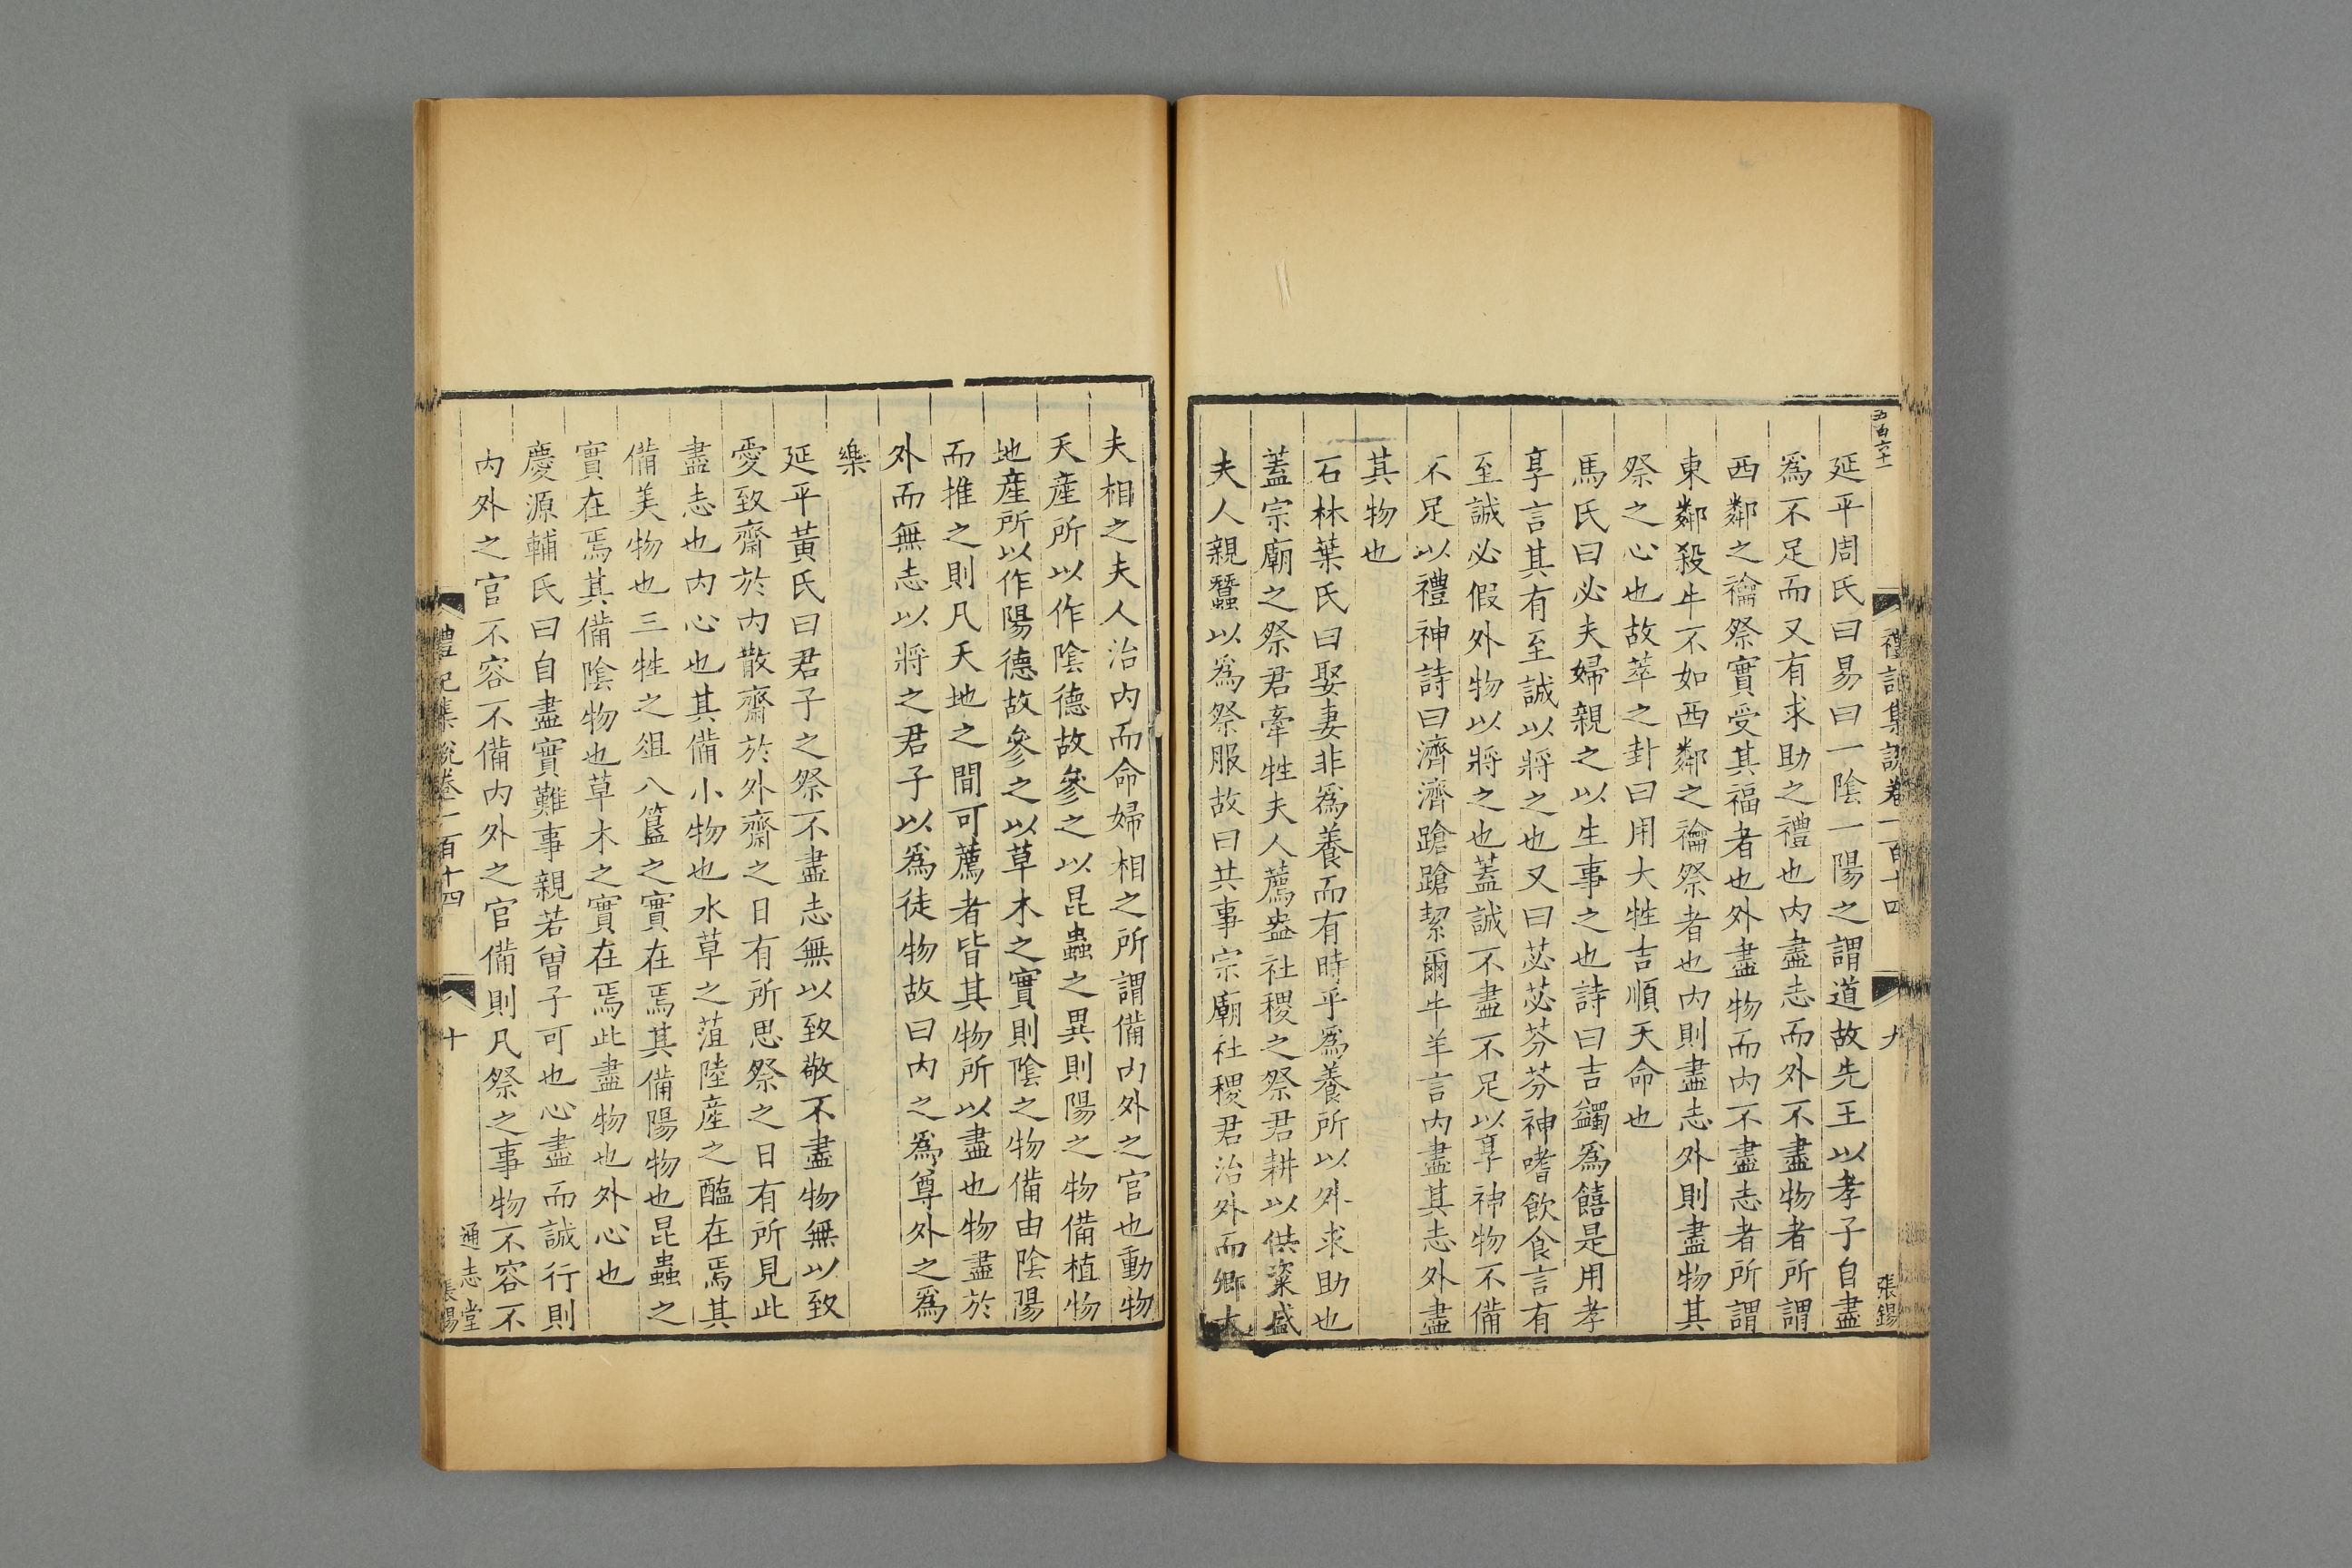 五百六十一
禮記集説卷一百十四
九
張錫
延平周氏曰易曰一陰一陽之謂道故先王以孝子自盡
爲不足而又有求助之禮也内盡志而外不盡物者所謂
西鄰之禴祭實受其福者也外盡物而内不盡志者所謂
東鄰殺牛不如西鄰之禴祭者也内則盡志外則盡物其
祭之心也故萃之卦曰用大牲吉順天命也
馬氏曰必夫婦親之以生事之也詩曰吉蠲爲饎是用孝
享言其有至誠以將之也又曰苾苾芬芬神嗜飲食言有
至誠必假外物以將之也蓋誠不盡不足以享神物不備
不足以禮神詩曰濟濟蹌蹌絜爾牛羊言内盡其志外盡
其物也
石林葉氏曰娶妻非爲養而有時乎爲養所以外求助也
蓋宗廟之祭君牽牲夫人薦盎社稷之祭君耕以供粢盛
夫人親蠶以爲祭服故曰共事宗廟社稷君治外而卿大
夫相之夫人治内而命婦相之所謂備内外之官也動物
天産所以作陰德故參之以昆蟲之異則陽之物備植物
地産所以作陽德故參之以草木之實則陰之物備由陰陽
而推之則凡天地之間可薦者皆其物所以盡也物盡於
外而無志以將之君子以爲徒物故曰内之爲尊外之爲
樂
延平黄氏曰君子之祭不盡志無以致敬不盡物無以致
愛致齋於内散齋於外齋之日有所思祭之日有所見此
盡志也内心也其備小物也水草之菹陸産之醢在焉其
備美物也三牲之俎八簋之實在焉其備陽物也昆蟲之
實在焉其備陰物也草木之實在焉此盡物也外心也
慶源輔氏曰自盡實難事親若曽子可也心盡而誠行則
内外之官不容不備内外之官備則凡祭之事物不容不
禮記集説卷一百十四
十
通志堂
張錫